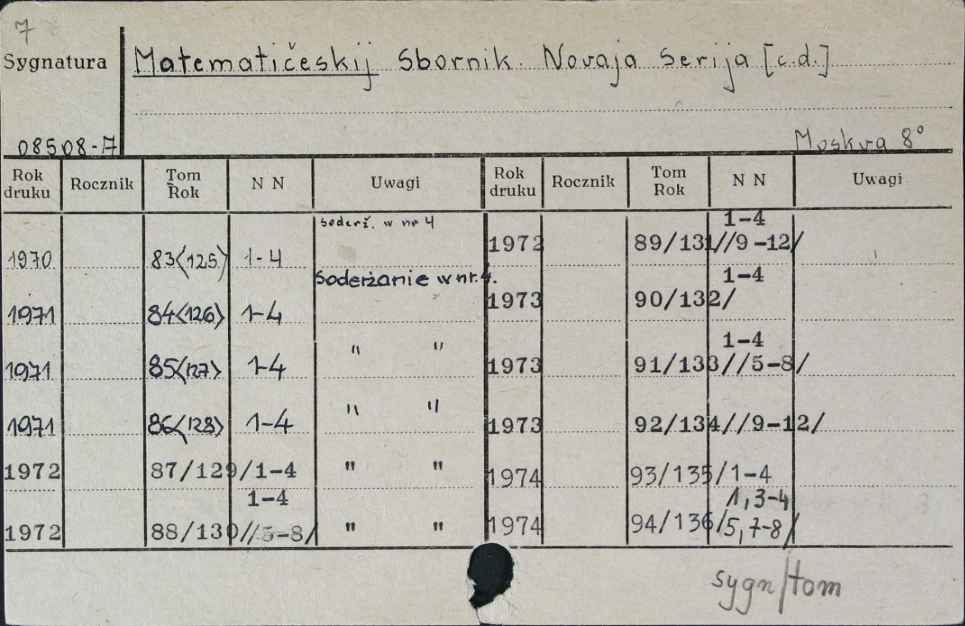 7
Sygnatura
Matematičeskij Sbornik. Novaja Serija [c.d.]
08508-7
Moskva 8°
Rok druku Rocznik Tom Rok N N Uwagi Rok druku Rocznik Tom Rok N N Uwagi
soderž. w nr 4
1970 83<125> 1-4
Soderżanie w nr. 4.
1971 84<126> 1-4
1971 85<127> 1-4 " "
1971 86<128> 1-4 " "
1972 87/129/1-4 " "
1-4
1972 88/130//5-8/ " "
1-4
1972 89/131//9-12/
1-4
1973 90/132/
1-4
1973 91/133//5-8/
1973 92/134//9-12/
1974 93/135/1-4
1,3-4
1974 94/136/5,7-8/
sygn/tom